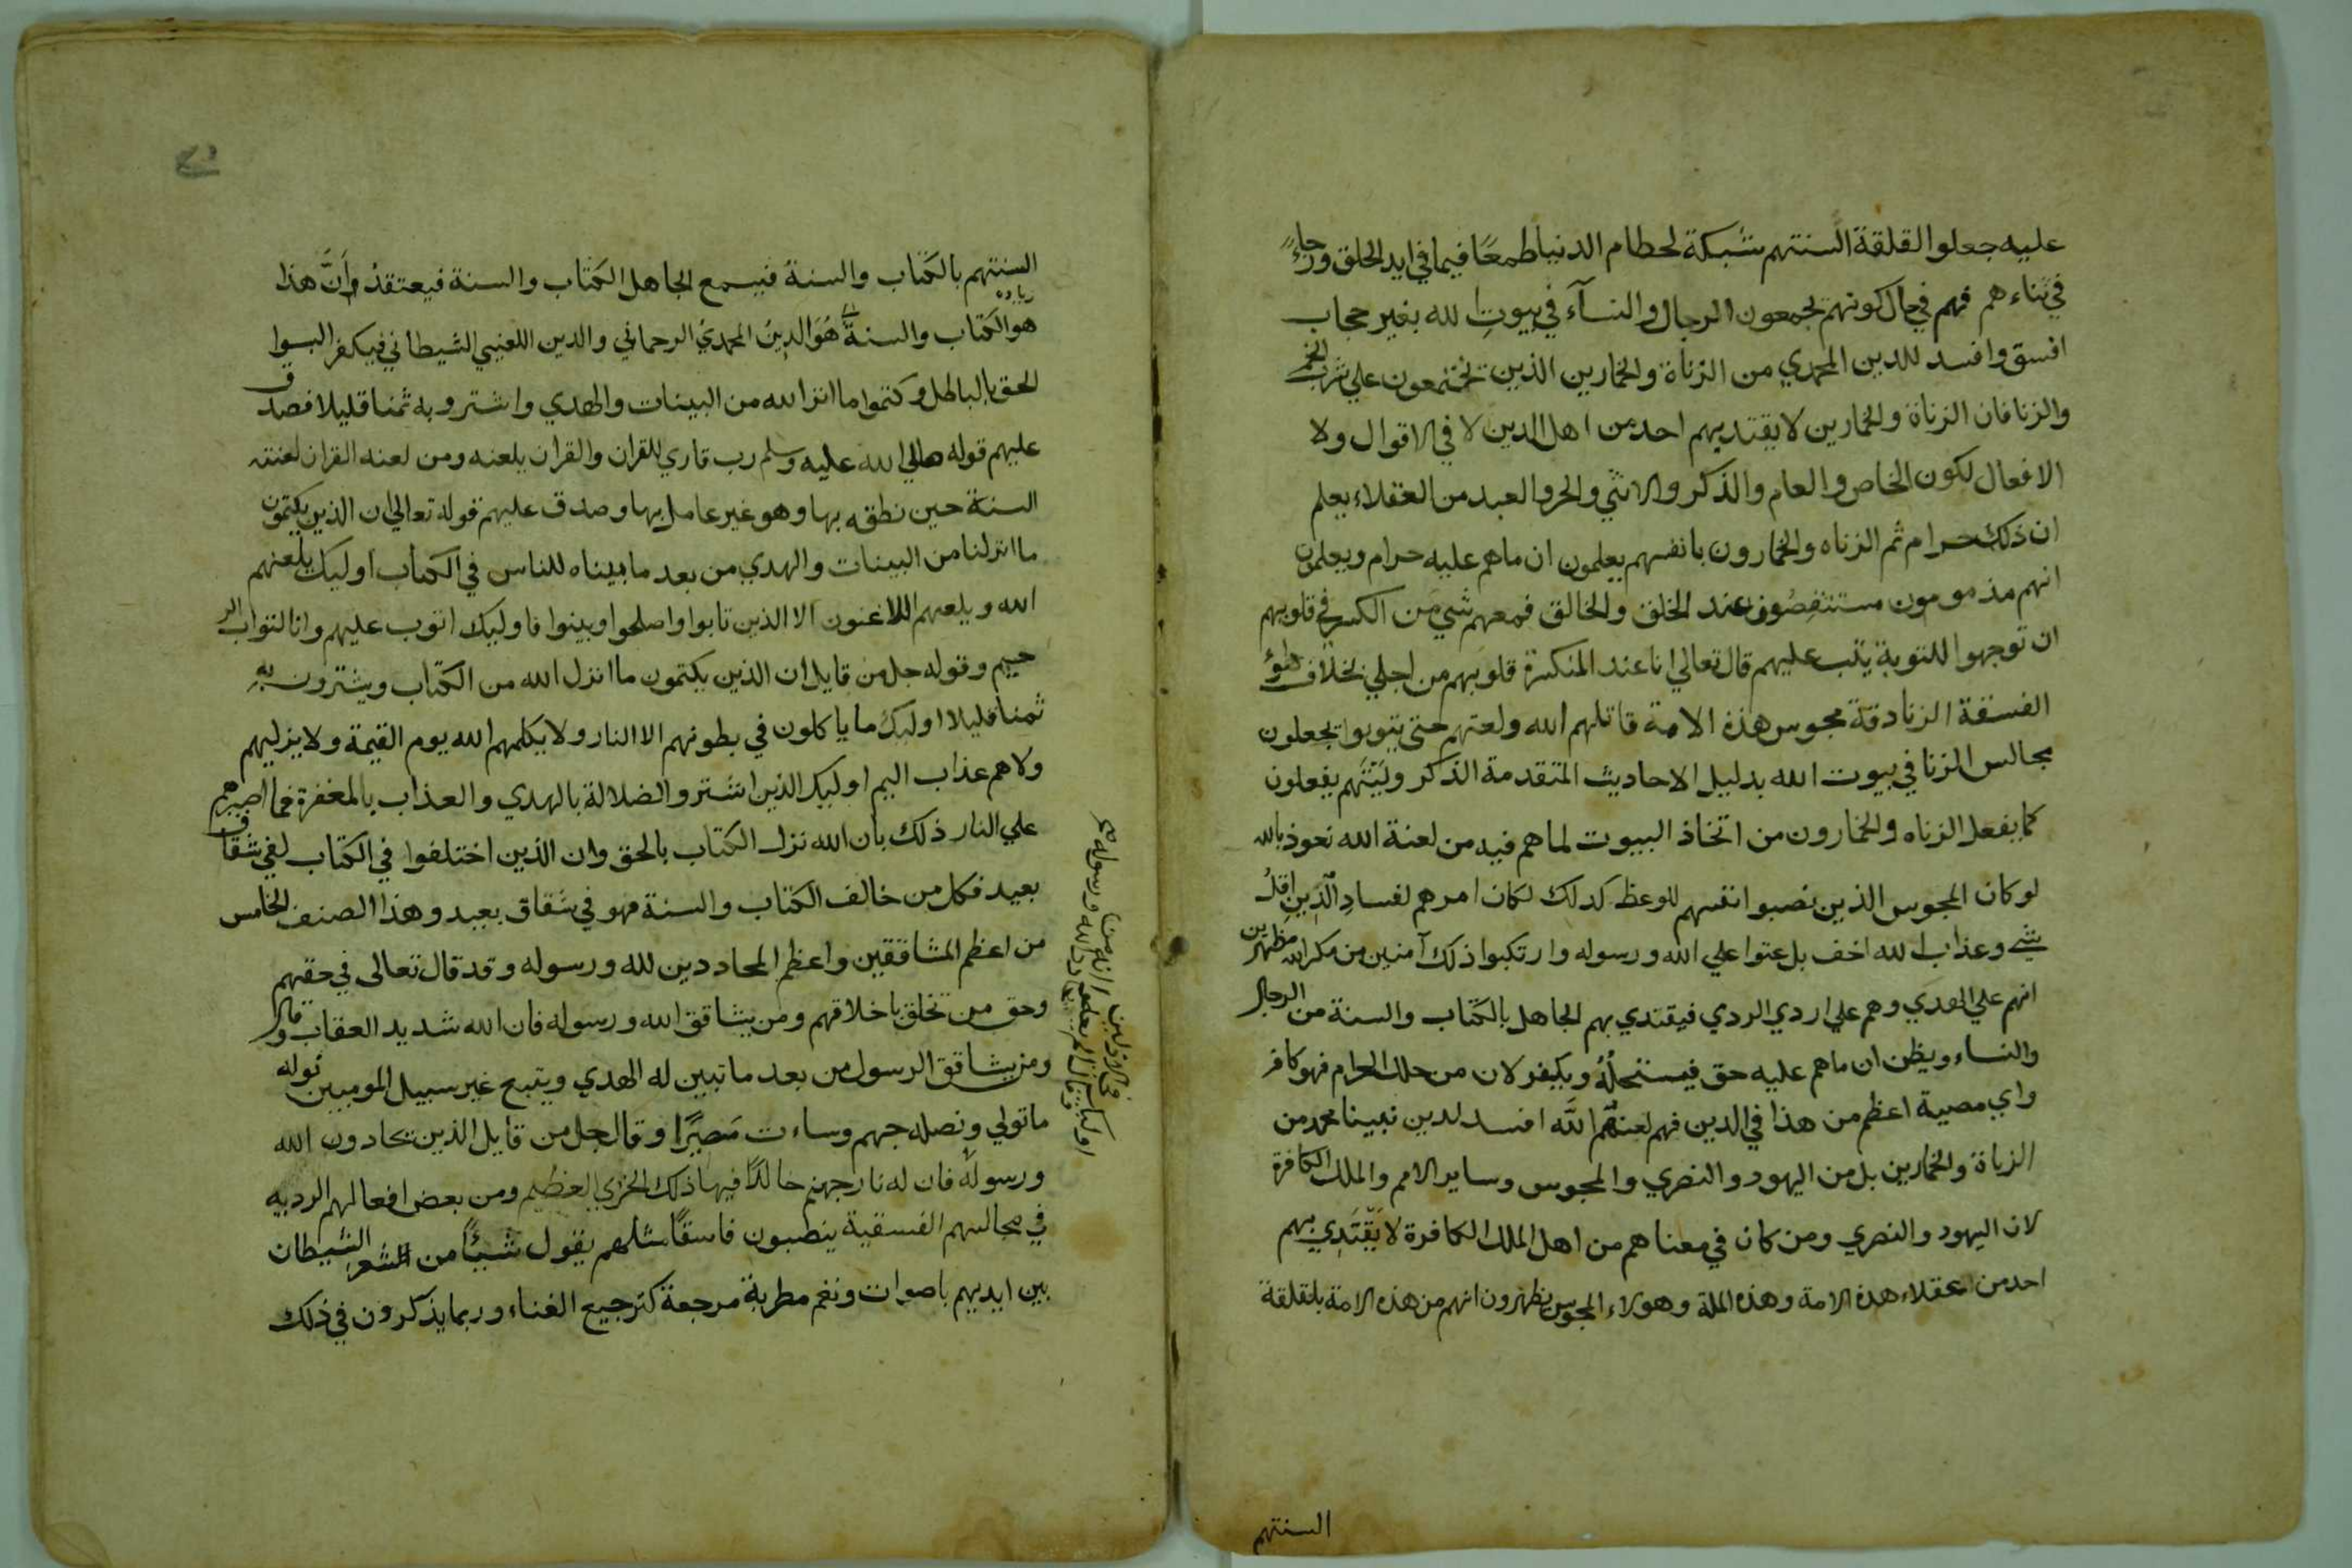 عليه جعلوا لقلقة السنتهم شبكة لحطام الدنيا طمعًا فيما في ايد الخلق ورجاءً
في ثناءهم فهم في حال كونهم يجمعون الرجال والنسآء في بيوتِ لله بغير حجاب
افسق وافسد للدين المحمدي من الزناة والخمارين الذين تختمعون علي شرب الخمر
والزنا فان الزناة والخمارين لا يقتد بهم احد من اهل الدين لا في الاقوال ولا
الافعال لكون الخاص والعام والذكر والانثي والحر والعبد من العقلاء يعلم
ان ذلك حرام ثم الزناه والخمارون بانفسهم يعلمون ان ماهم عليه حرام ويعلمون
انهم مذمومون مستنقصُون عند الخلق والخالق فمعهم شي من الكسر في قلوبهم
ان توجهوا للتوبة يتب عليهم قال تعالي انا عند المنكسرة قلوبهم من اجلي بخلاف هؤ
الفسقة الزنادقة مجوس هذة الامة قاتلهم الله ولعنهم حتى يتوبوا يجعلون
مجالس الزنا في بيوت الله بدليل الاحاديث المتقدمة الذكر وليتهم يفعلون
كما يفعل الزناه والخمارون من اتخاذ البيوت لما هم فيه من لعنة الله نعوذ بالله
لو كان المجوس الذين نصبوا انفسهم للوعظ كدلك لكان امرهم لفسادِ الذين اقلُ
شي وعذاب لله اخف بل عتوا علي الله ورسوله وارتكبوا ذلك آمنين من مكر الله مظهرين
انهم علي الهدي وهم علي اردي الردي فيقتدي بهم الجاهل بالكتاب والسنة من الرجال
والنساء ويظن ان ماهم عليه حق فيستحلُهُ ويكفر لان من حلل الحرام فهو كافر
واي مصيبة اعظم من هذا في الدين فهم لعنهُم اللَّه افسد لدين نبينا محمد من
الزناة والخمارين بل من اليهود والنصري والمجوس وساير الامم والملل الكافرة
لان اليهود والنصري ومن كان في معناهم من اهل الملل الكافرة لا يَقْتَدِي بهم
احد من عقلاء هذة الامة وهذه الملة وهولاء المجوس يظهرون انهم من هذه الامة بلقلقة
السنتهم
السنتهم بالكتاب والسنة فيسمع الجاهل الكتاب والسنة فيعتقدُ وأنَّ هذا
زياده
هو الكتاب والسنة هُوَ الدينُ المحمديُ الرحماني والدين اللعيني الشيطاني فيكفر البسوا
الحق بالباطل وكتموا ما انزا لله من البينات والهدي واشتروبه ثمنا قليلا فصدق
عليهم قوله صلي الله عليه وسلم رب قاري للقران والقران يلعنه ومن لعنه القران لعنته
السنة حين نطقه بها وهو غير عامل بها وصدق عليهم قوله تعالي ان الذين يكتمون
ما انزلنا من البينات والهدي من بعد ما بيناه للناس في الكتاب اوليك يلعنهم
الله ويلعنهم اللاعنون الا الذين تابوا واصلحوا وبينوا فاوليك اتوب عليهم وانا التواب الر
حيم وقوله جل من قايل ان الذين يكتمون ما انزل الله من الكتاب ويشترون بهِ
ثمنا قليلا اوليك ما ياكلون في بطونهم الا النار ولا يكلمهم الله يوم القيمة ولا يزكيهم
ولاهم عذاب اليم اوليك الذين اشتروا لضلالة بالهدي والعذاب بالمغفرة فما اصبرهم
علي النار ذلك بان الله نزل الكتاب بالحق وان الذين اختلفوا في الكتاب لفي شقاق
بعيد فكل من خالف الكتاب والسنة فهو في شقاق بعيد وهذا الصنف الخامس
من اعظم المشاققين واعظم المحاددين لله ورسوله وقد قال تعالى في حقهم
وحق من تخلق باخلاقهم ومن يشاقق الله ورسوله فان الله شديد العقاب وقال
ومن يشاقق الرسول من بعد ما تبين له الهدي ويتبع غير سبيل المومنين نوله
ما تولي ونصله جهنم وساءت مَصيرًا وقال جل من قايل الذين يحادون الله
اوليك في الاذلين
ورسولهُ فان له نار جهنم خالدًا فيها ذلك الخزي العظيم ومن بعض افعالهم الرديه
في مجالسهم الفسقية ينصبون فاسقًا مثلهم يقول شيئًا من الشعر الشيطان
بين ايديهم باصوات ونغم مطربة مرجعة كترجيع الغناء وربما يذكرون في ذلك